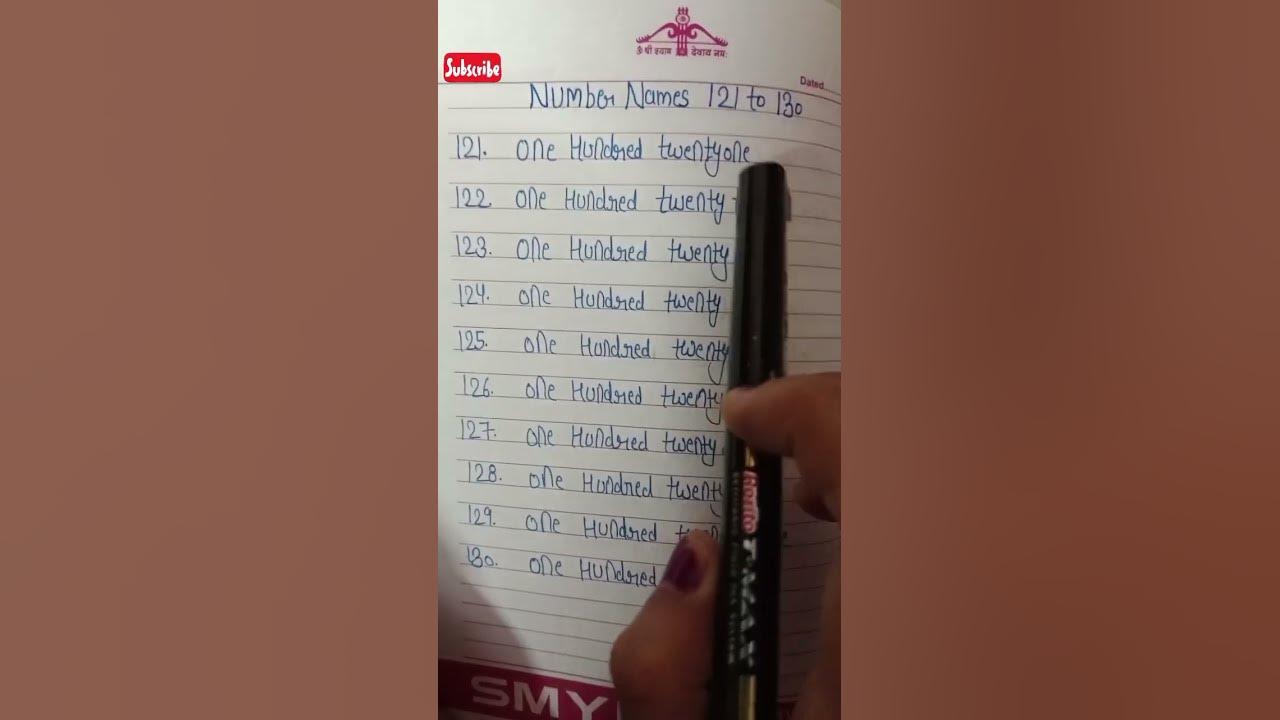 ॐ श्री श्याम देवाय नमः
Subscribe
Dated
Number Names 121 to 130
121. one Hundred twentyone
122 one Hundred twenty
123. one Hundred twenty
124. one Hundred twenty
125. one Hundred twenty
126. one Hundred twenty
127. one Hundred twenty
128. one Hundred twenty
129. one Hundred
130. one Hundred
SMY